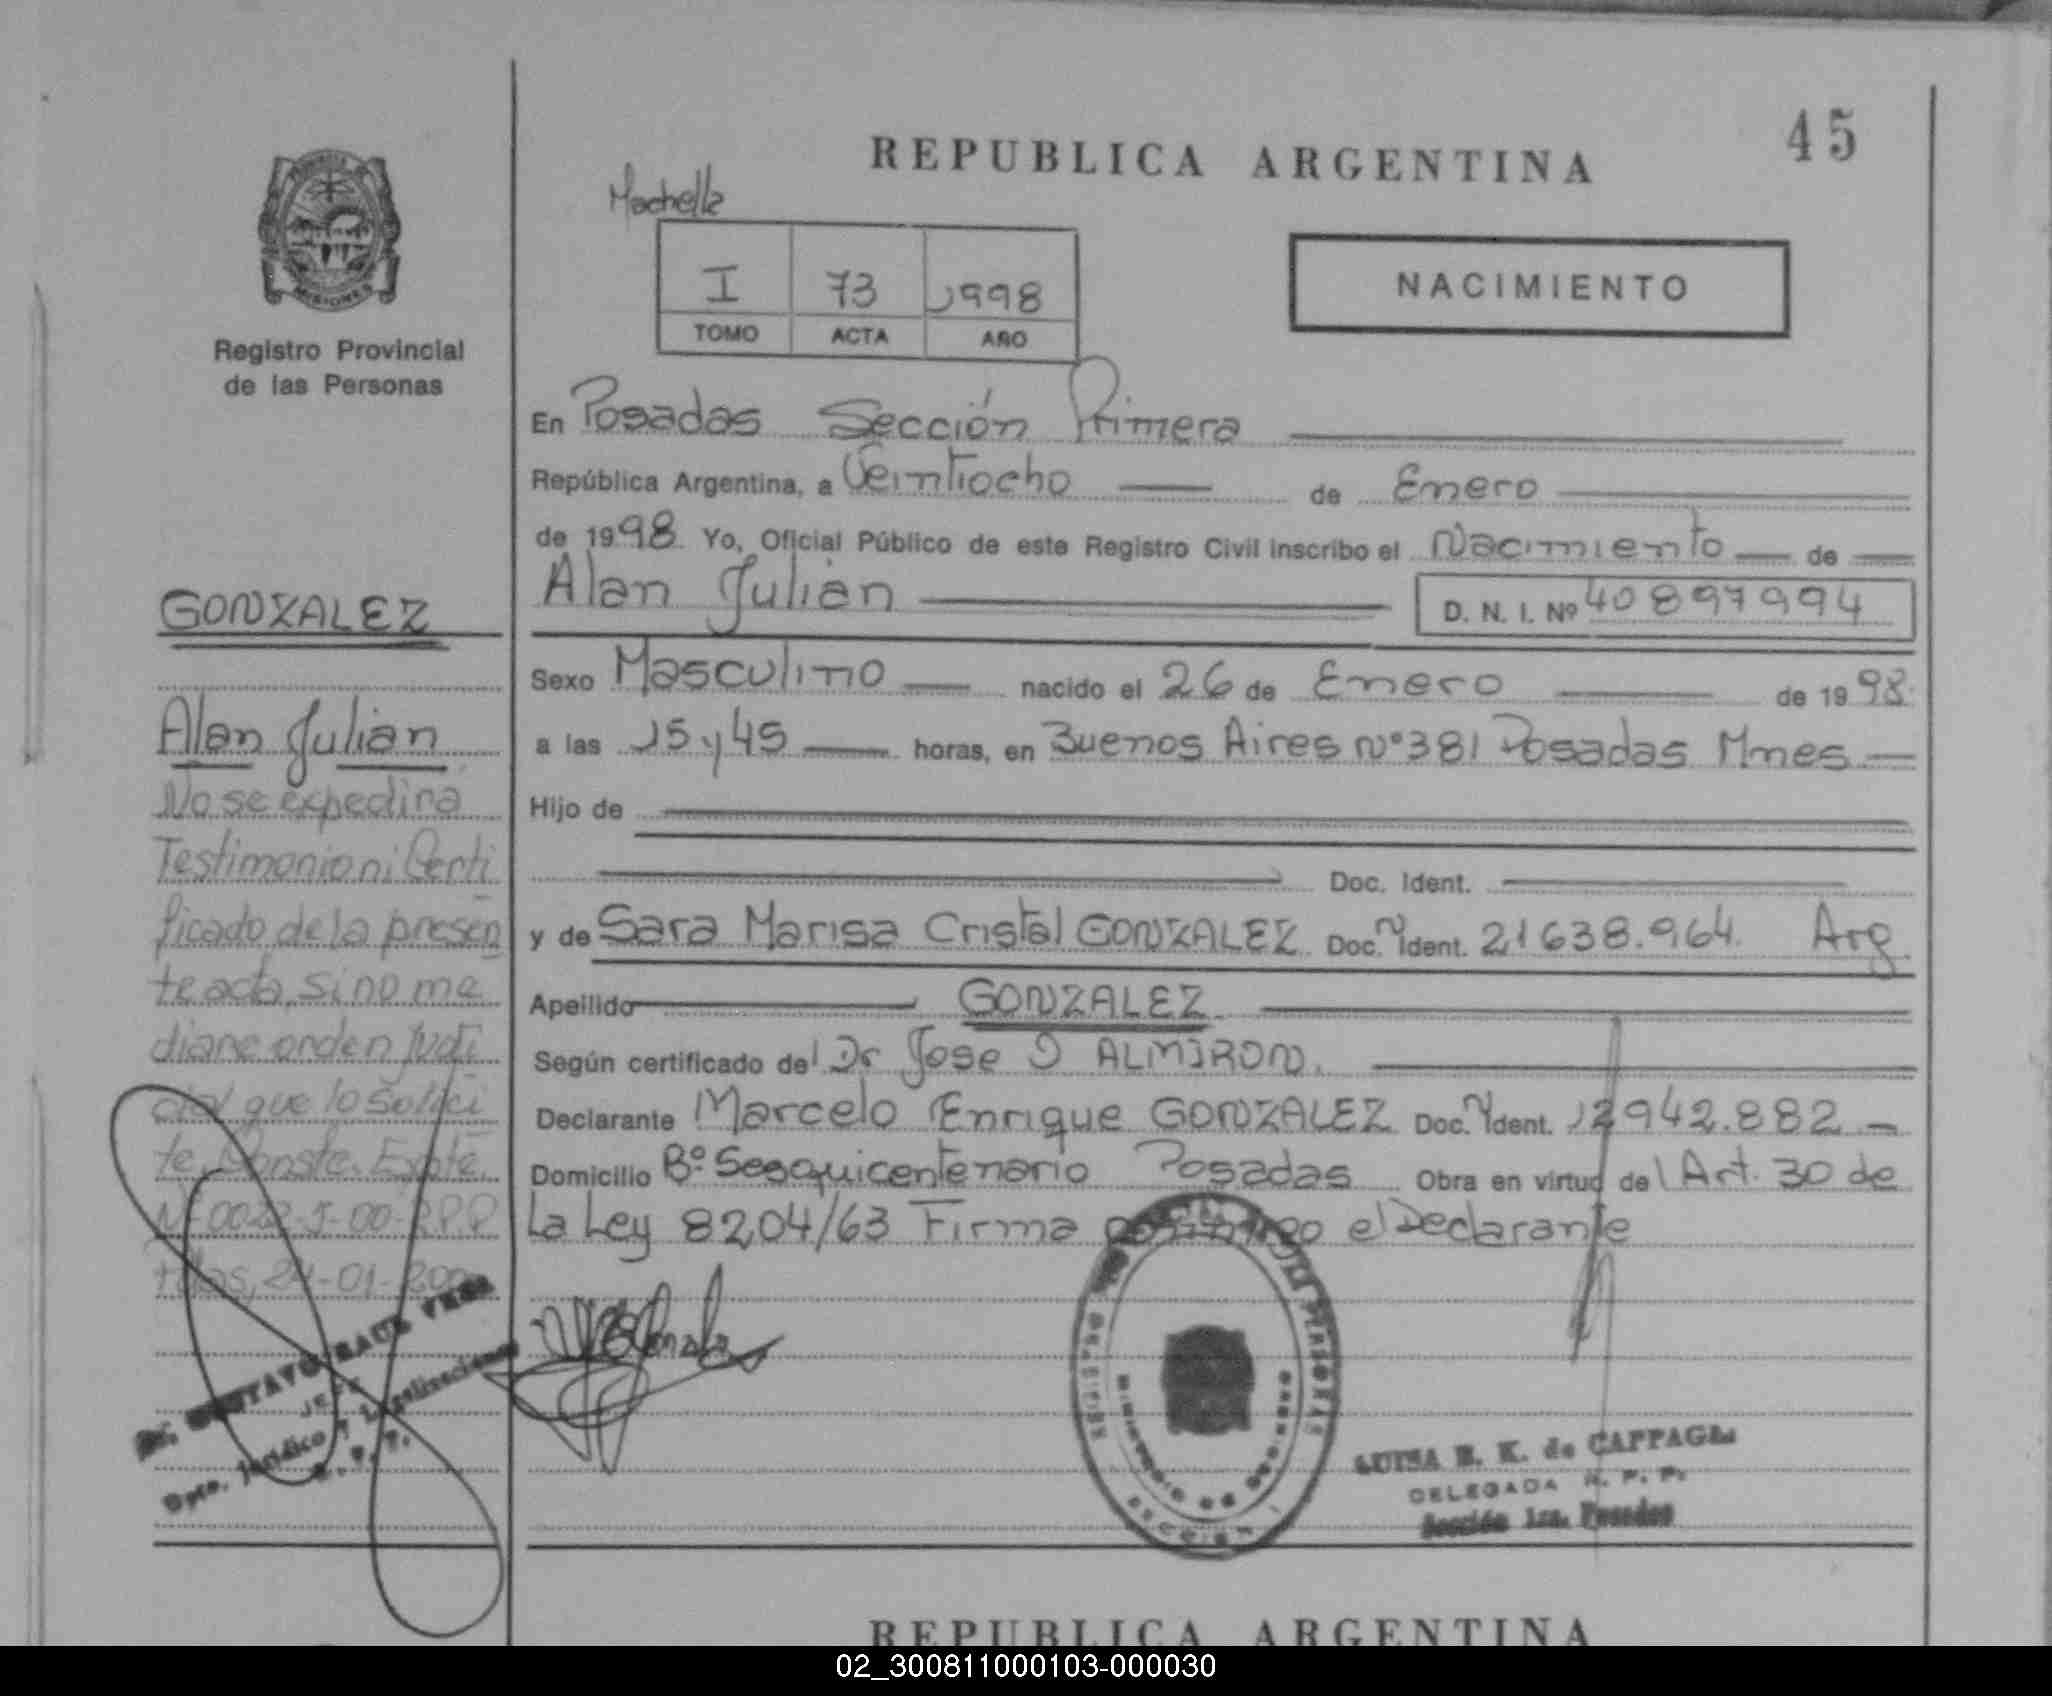 45
REPUBLICA ARGENTINA
MISIONES
Registro Provincial
de las Personas
I 73 1998
TOMO ACTA AÑO
NACIMIENTO
En Posadas Sección Primera
República Argentina, a Veintiocho de Enero
de 1998 Yo, Oficial Público de este Registro Civil inscribo el Nacimiento de
Alan Julián D. N. I. Nº 40897994
Sexo Masculino nacido el 26 de Enero de 1998
a las 15 y 45 horas, en Buenos Aires Nº 381 Posadas Mnes
Hijo de
Doc. Ident.
y de Sara Marisa Cristal GONZALEZ Doc. N Ident. 21638.964 Arg
Apellido GONZALEZ
Según certificado del Dr Jose O ALMIRON.
Declarante Marcelo Enrique GONZALEZ Doc. N Ident. 12942.882
Domicilio Bº Sesquicentenario Posadas Obra en virtud del Art. 30 de
La Ley 8204/63 Firma conmigo el Declarante
GONZALEZ
Alan Julián
No se expedirá
Testimonio ni Certi
ficado de la presen
te acta, sino me
diane orden judi
cial que lo solici
te. Conste. Expte.
Nº 0022-J-00-R.P.P
Pdas, 24-01-200
Dr. GUSTAVO RAUL VERA
JEFE
Dpto. Jurídico y Legalizaciones
R. P. P.
LUISA E. K. de CAPPAGLI
DELEGADA R. P. P.
Sección 1ra. Posadas
REPUBLICA ARGENTINA
02_300811000103-000030